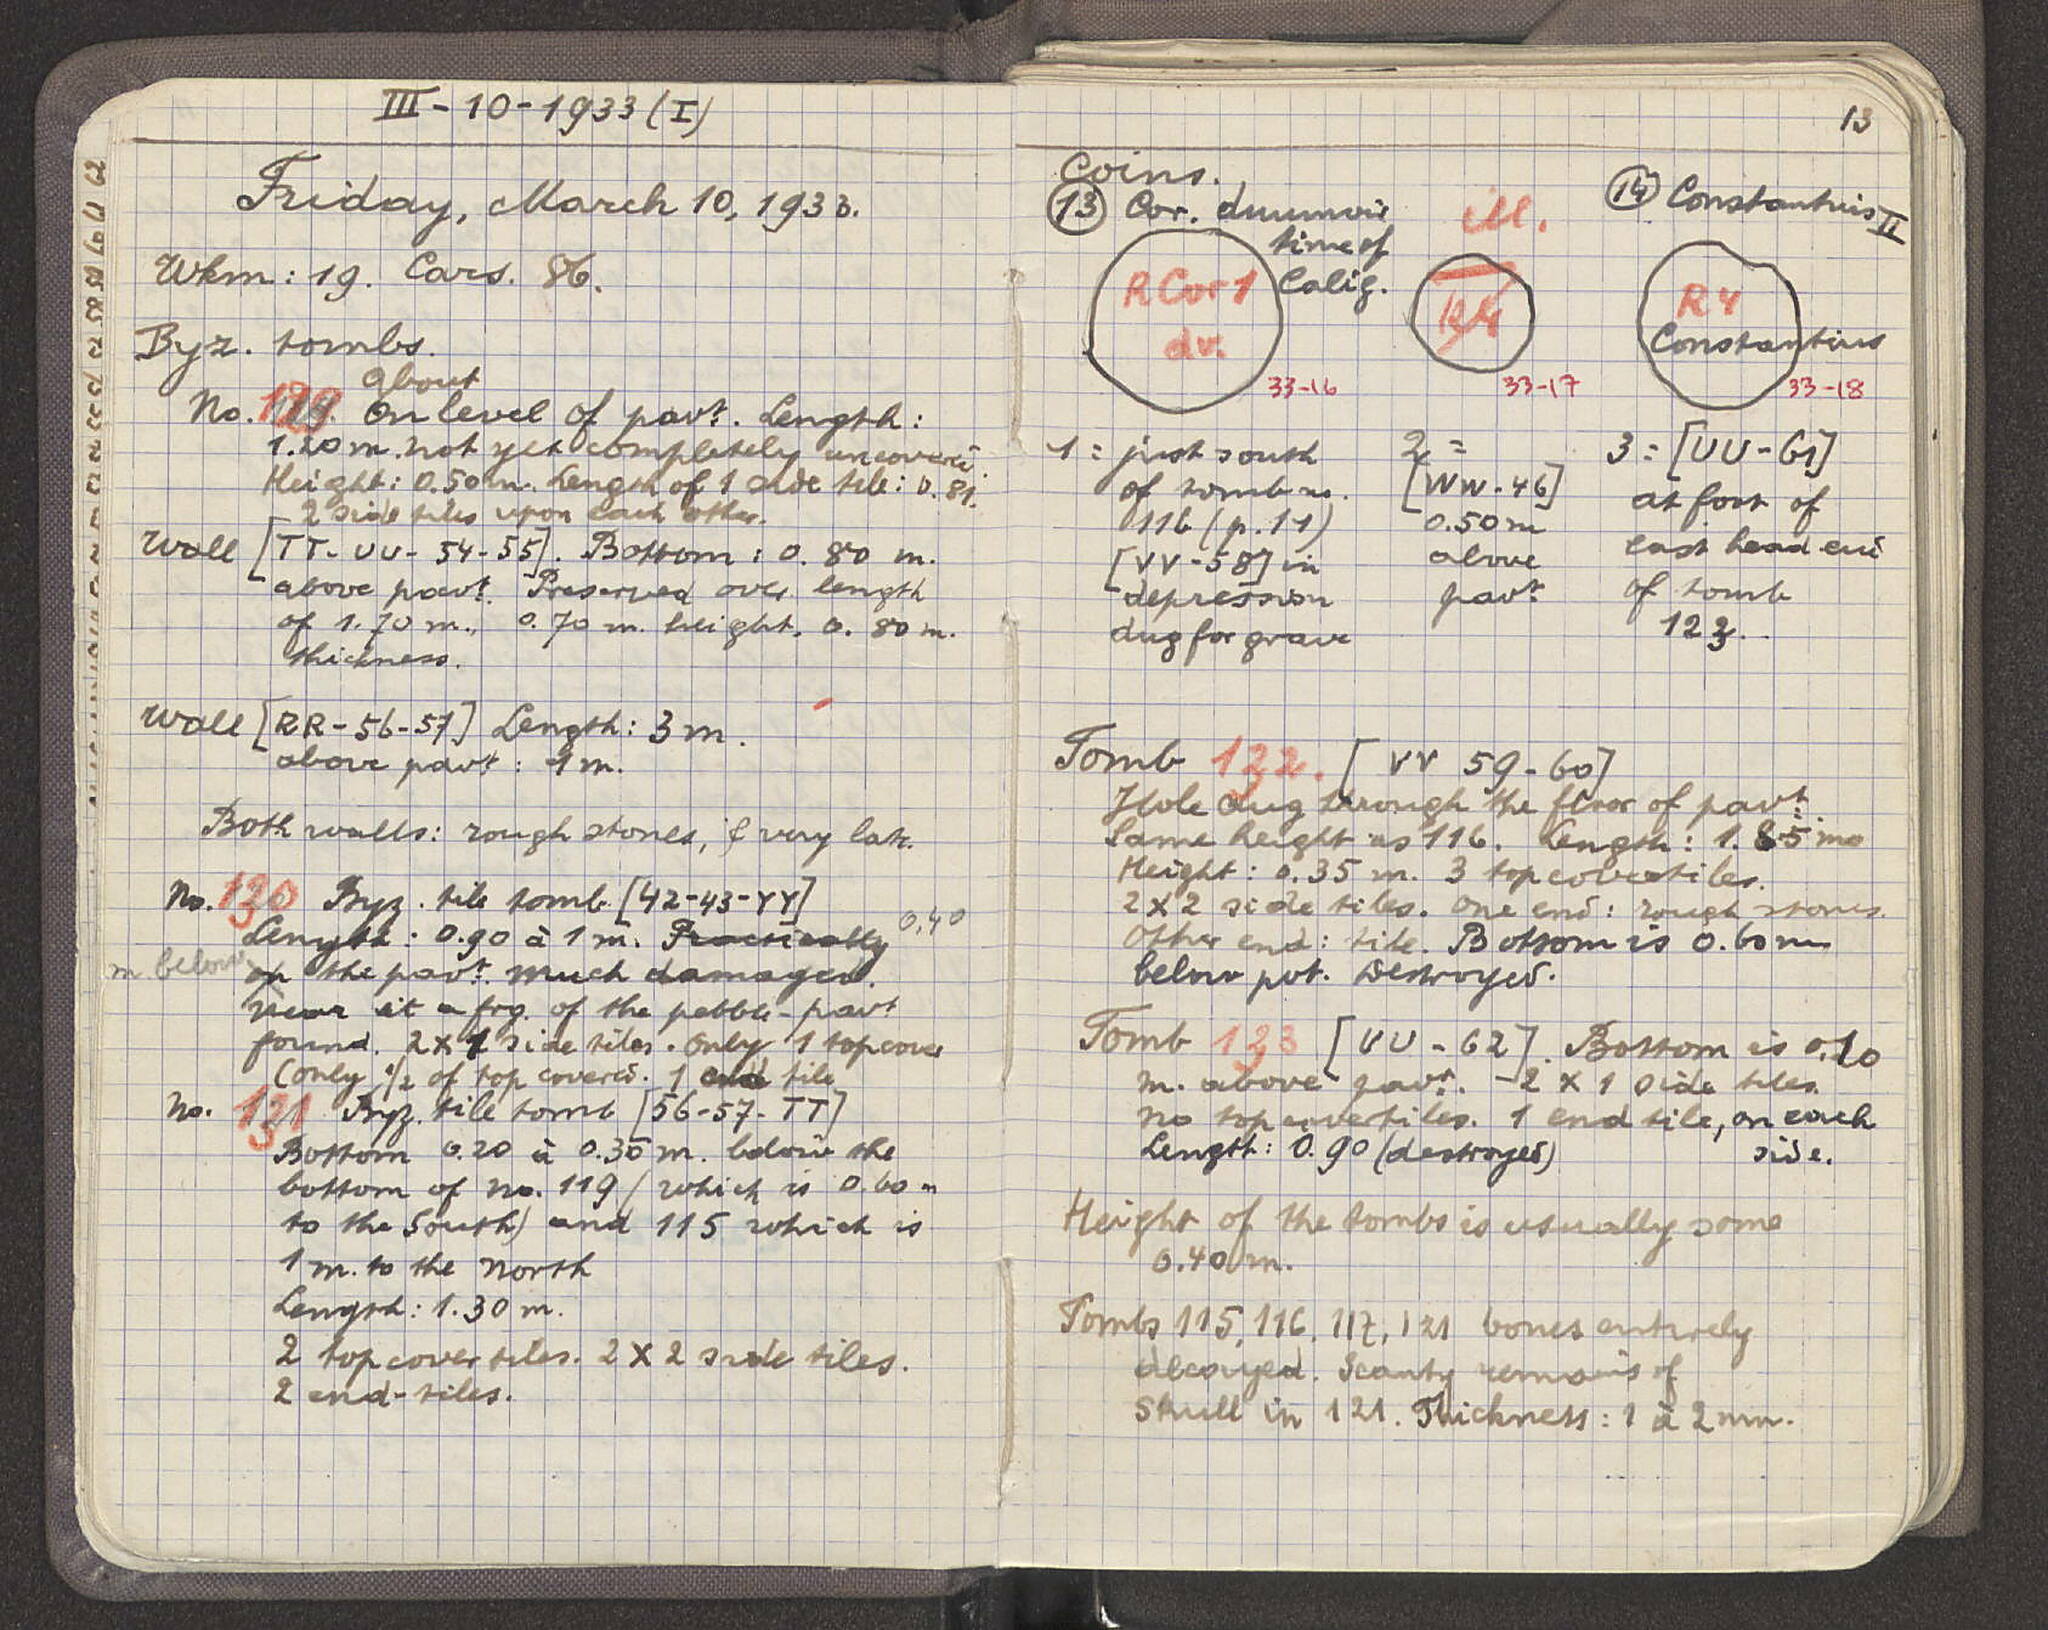 III - 10 - 1933 (I)
Friday, March 10, 1933.
Wkm: 19. Cars. 86.
Byz. tombs.
about
No. On level of pavt. Length:
1.20 m. not yet completely uncovered.
Height: 0.50 m. Length of 1 side tile: 0.81.
2 side tiles upon each other.
Wall [TT-UU-54-55]. Bottom: 0.80 m.
above pavt. Preserved over length
of 1.70 m., 0.70 m. height. 0.80 m.
thickness.
Wall [RR-56-57] Length: 3 m.
above pavt: 1 m.
Both walls: rough stones, & very late.
No. 120 Byz. tile tomb [42-43-YY]
Length: 0.90 à 1 m. Practically 0,40
m. below on the pavt. Much damaged.
Near it a frg. of the pebble-pavt
found. 2 x 1 side tiles. Only 1 topcover
(only 1/2 of top covered. 1 end tile
No. 121 Byz. tile tomb [56-57-TT]
Bottom 0.20 à 0.30 m. below the
bottom of no. 119 (which is 0.60 m
to the South) and 115 which is
1 m. to the North
Length: 1.30 m.
2 topcover tiles. 2 x 2 side tiles.
2 end-tiles.
13
Coins.
13 Cor. duumvir
time of
Calig.
ill.
14 Constantius II
R Cor 1
dv.
R4
R4
Constantius
33-16
33-17
33-18
1 = just south
of tomb no.
116 (p. 11)
[VV-58] in
depression
dug for grave
2 =
[WW-46]
0.50 m
above
pavt
3 = [UU-61]
at foot of
east head end
of tomb
123.
Tomb 122. [VV 59-60]
Hole dug through the floor of pavt.
Same height as 116. Length: 1.65 m
Height: 0.35 m. 3 topcovertiles.
2 x 2 side tiles. One end: rough stones.
Other end: tile. Bottom is 0.60 m
below pvt. Destroyed.
Tomb 123 [UU-62]. Bottom is 0.10
m. above pavt. - 2 x 1 side tiles.
No topcovertiles. 1 end tile, on each
side.
Length: 0.90 (destroyed)
Height of the tombs is usually some
0.40 m.
Tombs 115, 116, 117, 121 bones entirely
decayed. Scanty remains of
Skull in 121. Thickness: 1 à 2 mm.